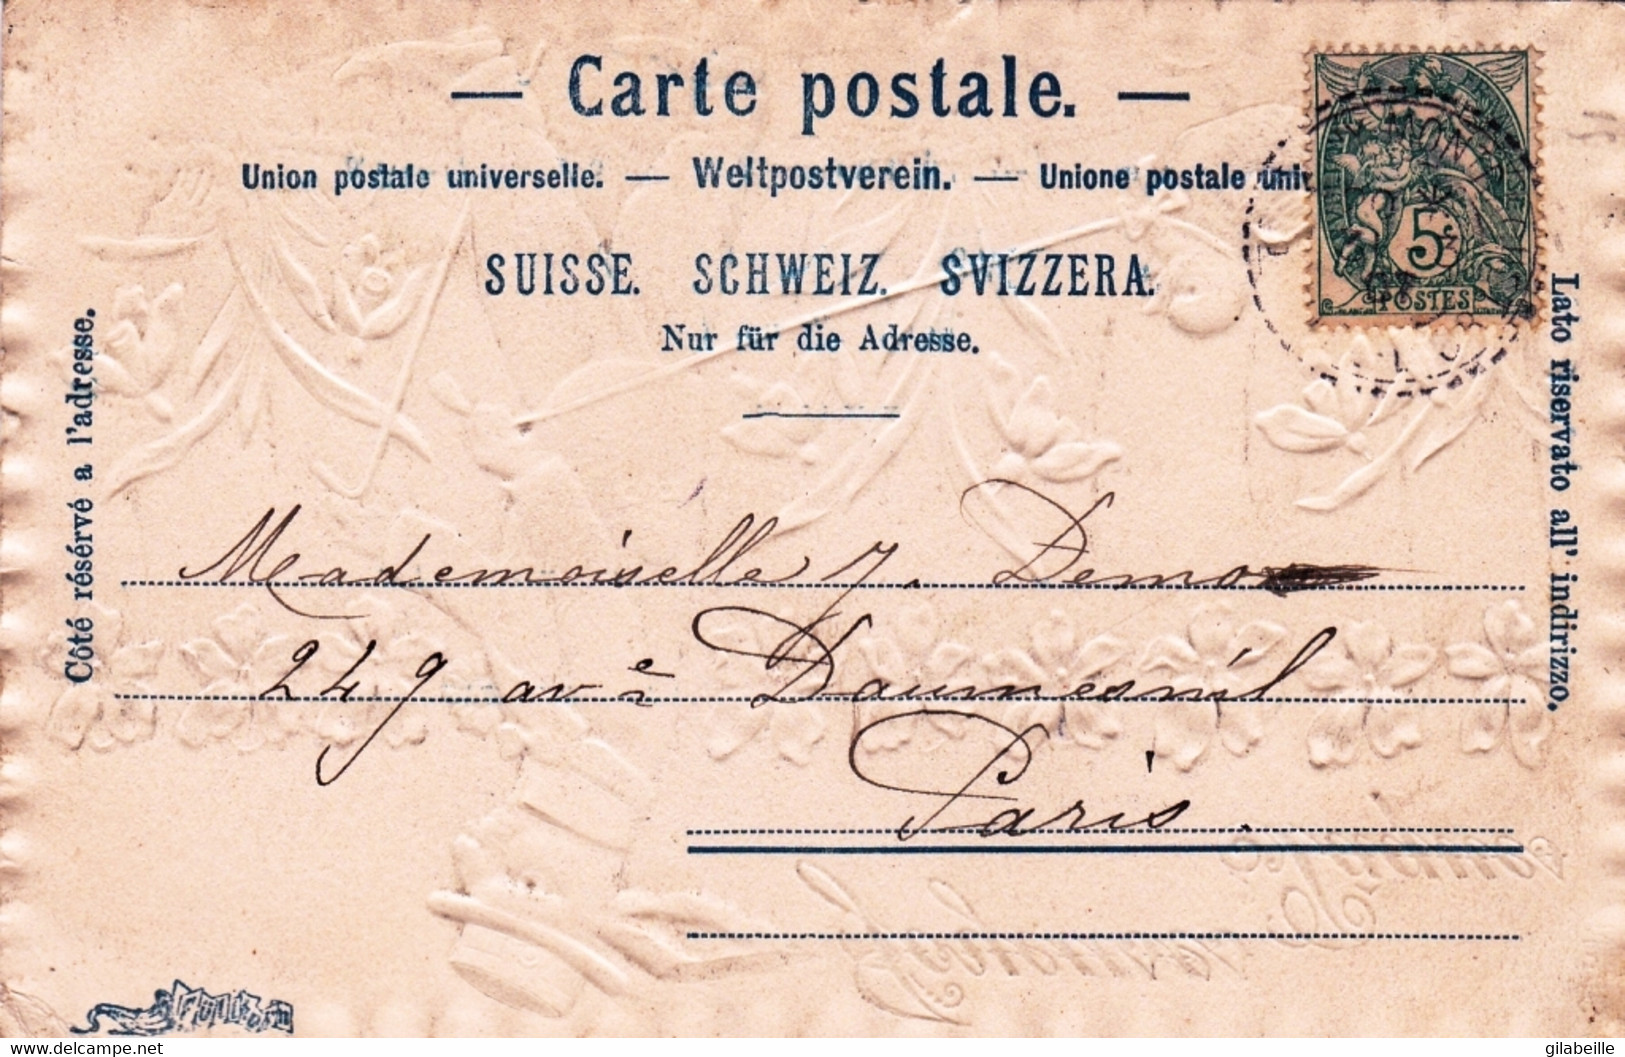 — Carte postale. —
Union postale universelle. — Weltpostverein. — Unione postale univ
SUISSE. SCHWEIZ. SVIZZERA.
Nur für die Adresse.
Côté résérvé a l'adresse.
Lato riservato all' indirizzo.
5c
POSTES
Mademoiselle J. Demo
249 av e Daumesnil
Paris.
delcampe.net
gilabeille